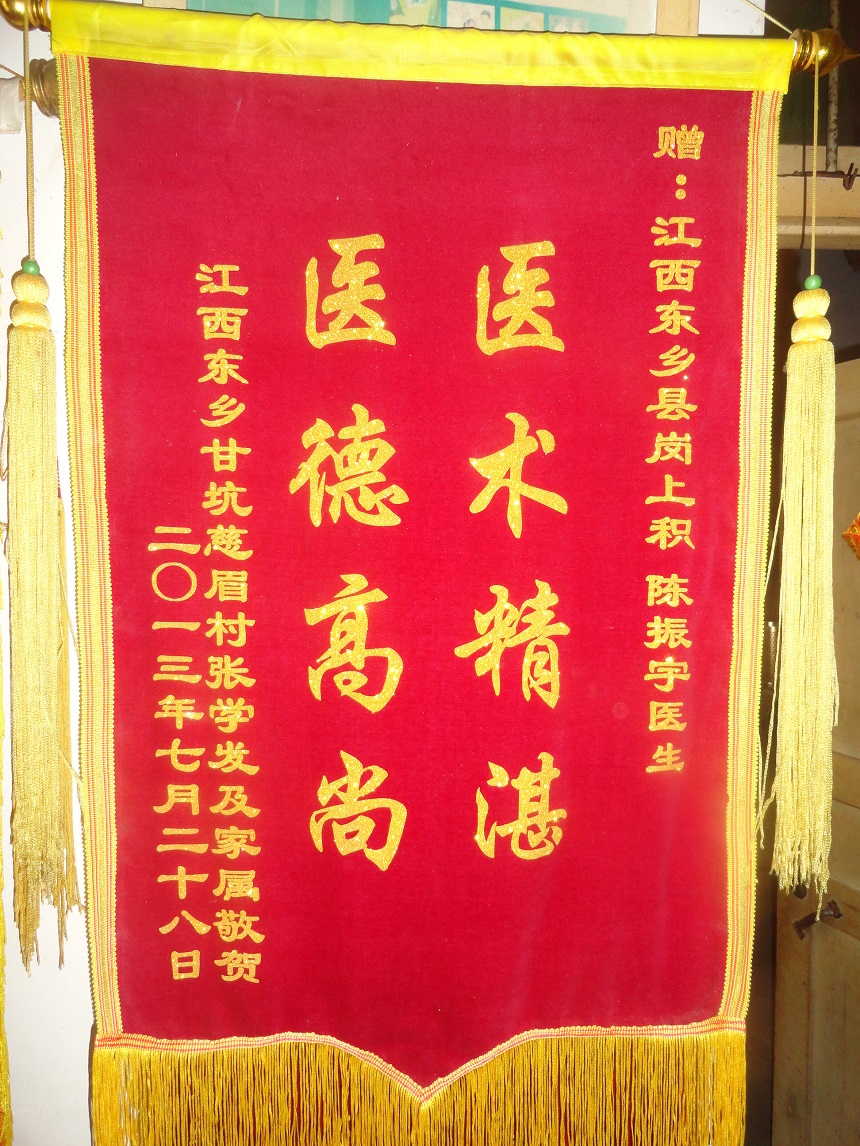 赠：江西东乡县岗上积 陈振宇医生
医术精湛
医德高尚
江西东乡甘坑慈眉村张学发及家属敬贺
二〇一三年七月二十八日